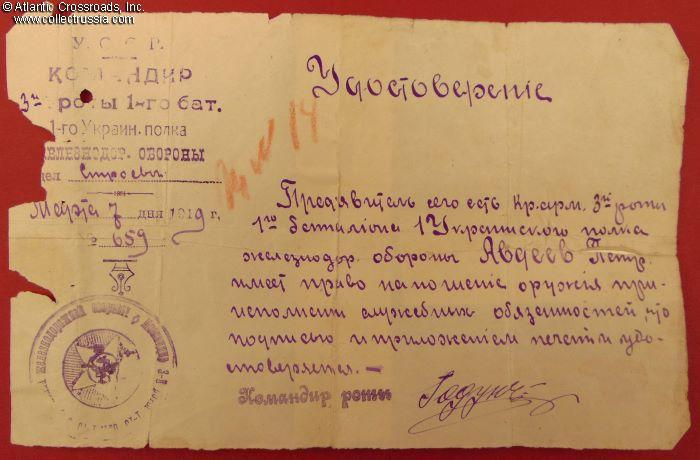 © Atlantic Crossroads, Inc.
www.collectrussia.com
У. С. С. Р.
КОМАНДИР
3-й роты 1-го бат.
1-го Украин. полка
ЖЕЛЕЗНОДОР. ОБОРОНЫ
дел Строевы
Марта 7 дня 1919 г.
№ 659
Удостоверенiе
№ 14
Пред'явитель сего есть Кр. арм. 3ей роты
1го баталiона 1 Украинского полка
железнодор. обороны Авдеев Петр.
имеет право на ношенiе оружiя при
исполнении служебных обязанностей, что
подписью и приложенiем печати удо-
стоверяется. —
Командир роты